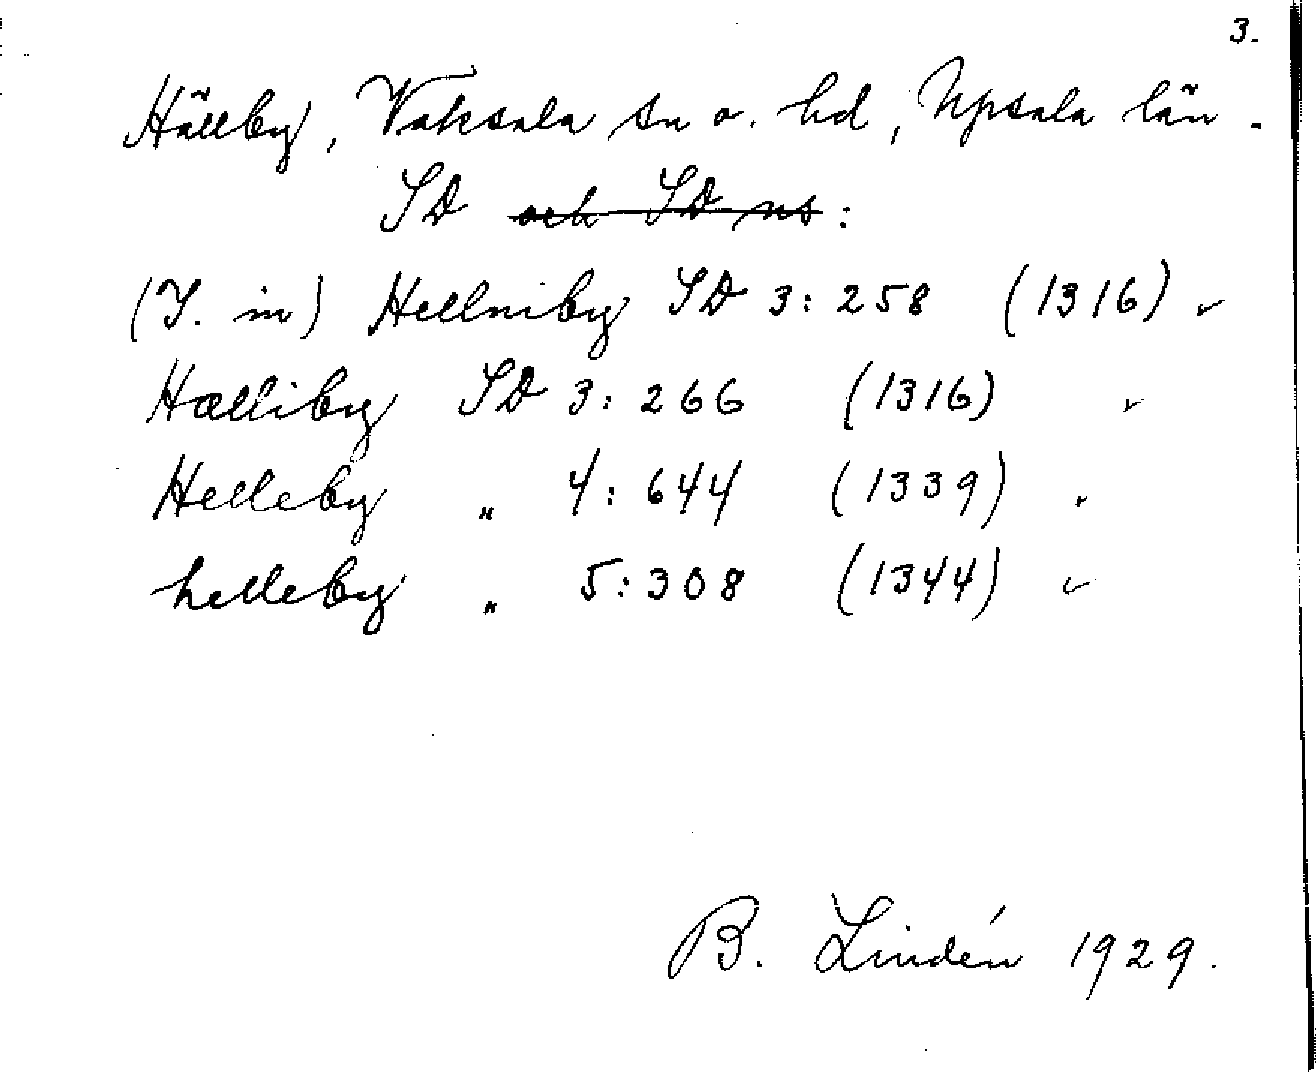 3.
Hällby, Vaksala sn o. hd, Upsala län.
SD och SD ns:
(J. in) Hellniby SD 3: 258 (1316) ✓
Hælliby SD 3: 266 (1316) ✓
Helleby „ 4: 644 (1339)
helleby „ 5: 308 (1344) ✓
B. Lindén 1929.